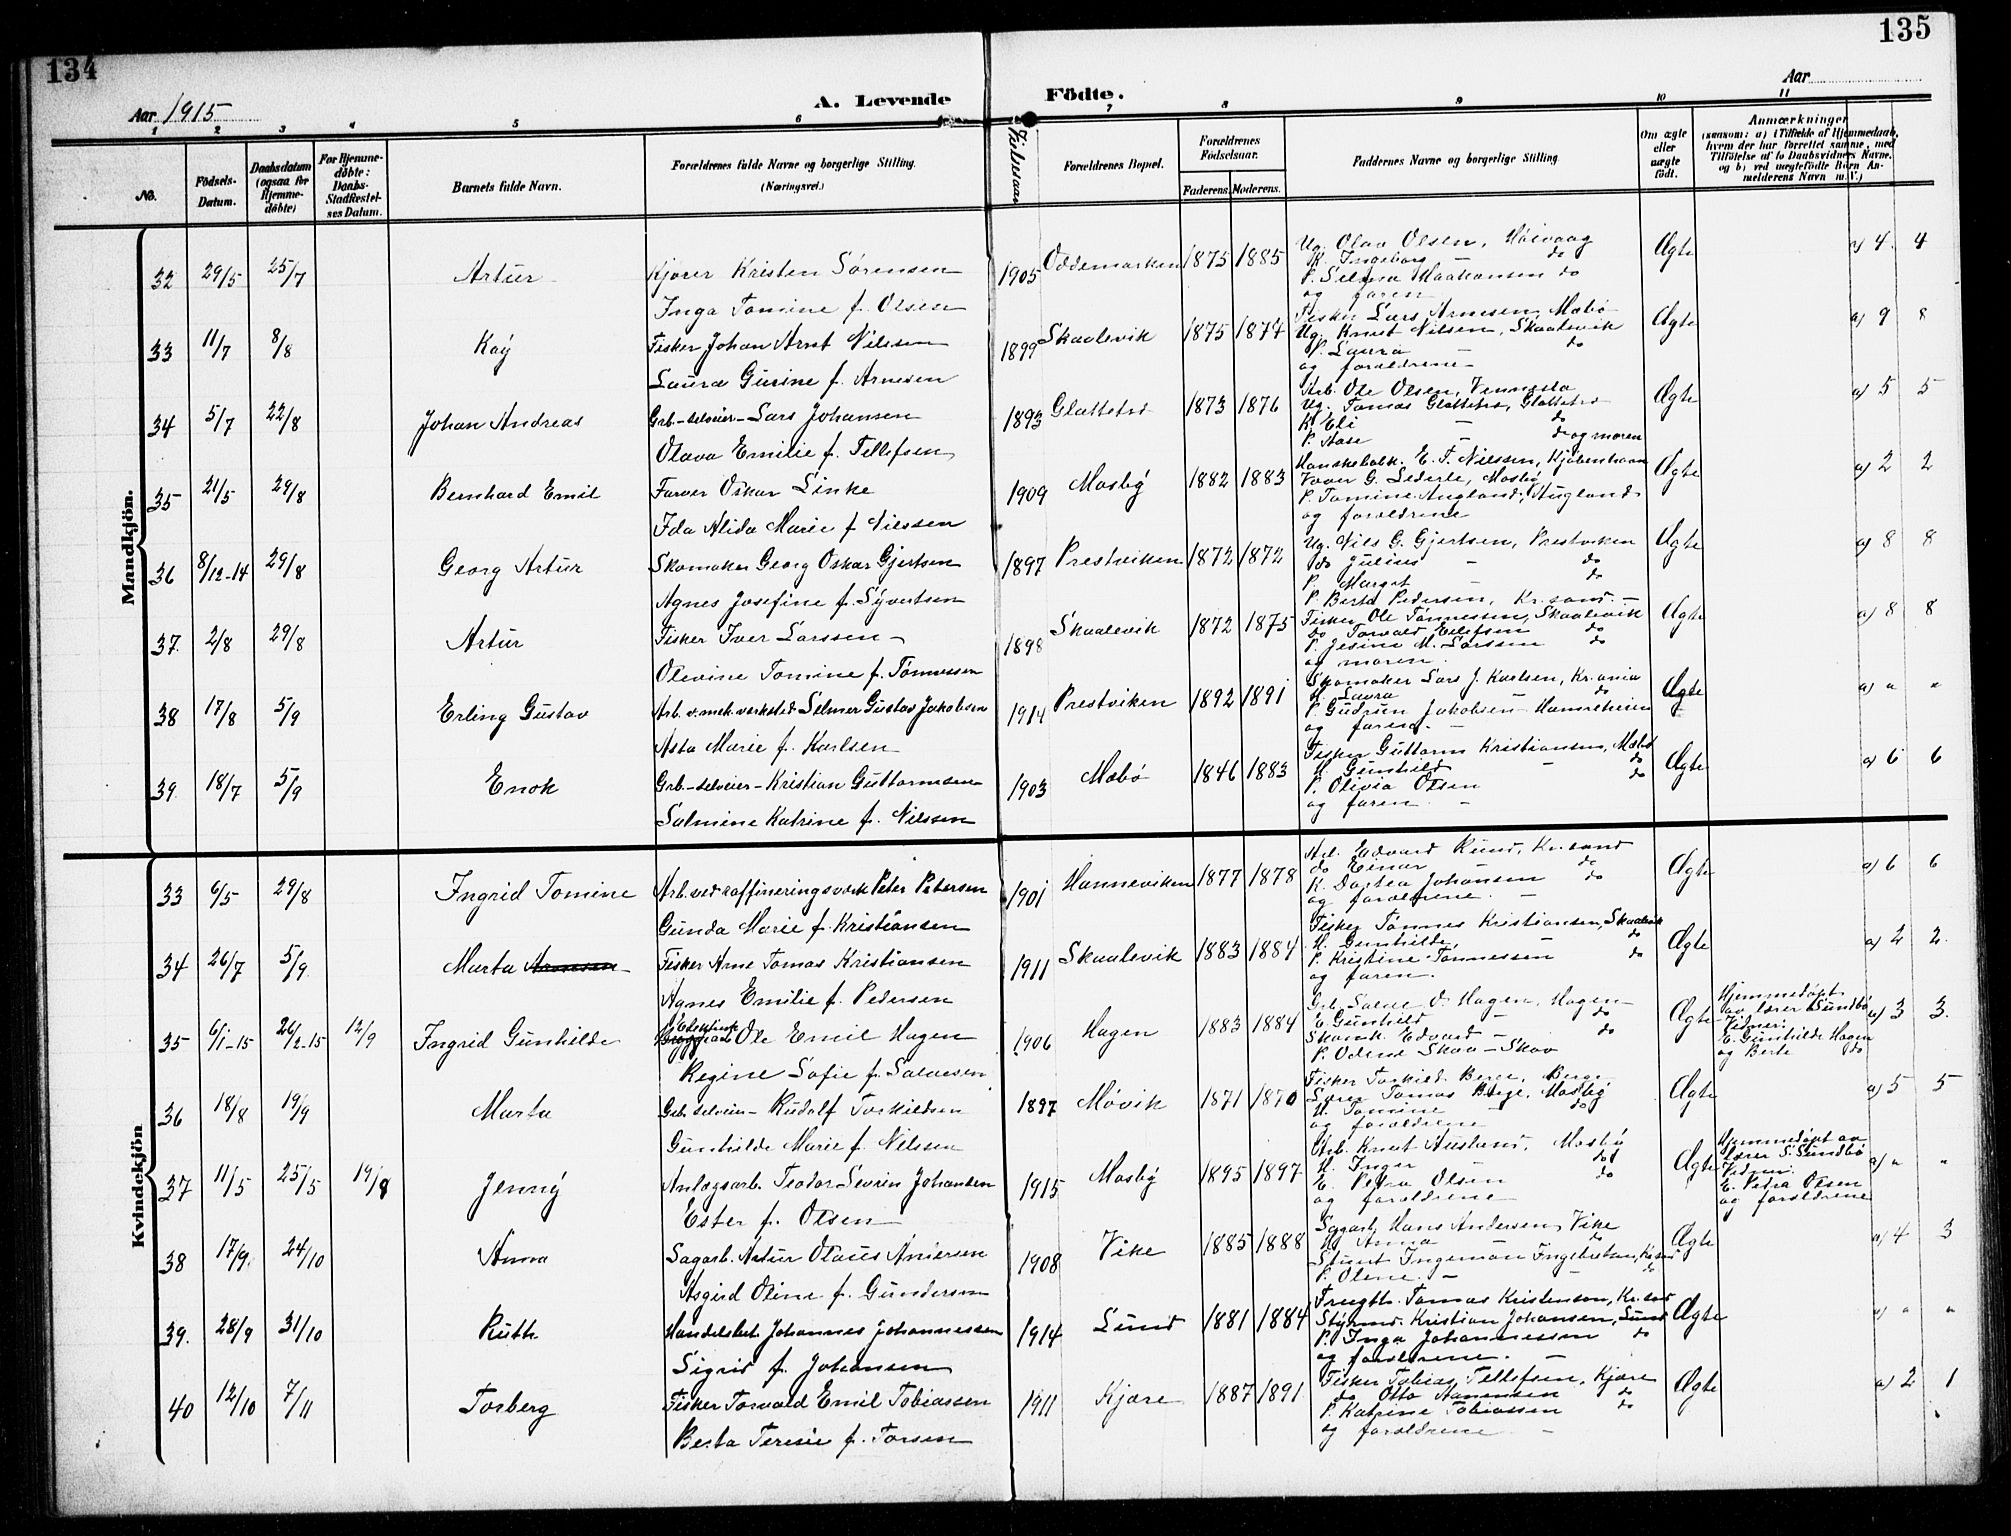 134
135
Aar 1915
A. Levende Födte.
Aar
1 2 3 4 5 6 7 8 9 10 11
No.
Födsels-Datum.
Daabsdatum (ogsaa for Hjemme-døbte)
For Hjemme-døbte: Daabs-Stadfæstel-ses Datum.
Barnets fulde Navn.
Forældrenes fulde Navne og borgerlige Stilling. (Næringsvei.)
Vielsesaar
Forældrenes Bopæl.
Forældrenes Födselsaar.
Faderens. Moderens.
Faddernes Navne og borgerlige Stilling
Om ægte eller uægte født.
Anmærkninger
(saasom: a) i Tilfælde af Hjemmedaab, hvem der har forrettet samme, med Tilföielse af to Daabsvidners Navne, og b) ved uægtefödte Börn An-melderens Navn m. V.)
Mandkjön.
32 29/5 25/7 Artur Kjører Kristen Sørensen 1905 Oddemarken 1875 1885 Ug. Olav Olsen, Høivaag Ægte a) 4. 4
K. Ingeborg — do
P. Selma Haakonsen do
Inga Tomine f. Olsen og faren
33 11/7 8/8 Kaÿ Fisker Johan Arnt Nilssen 1899 Skaalevik 1875 1874 Fisker Lars Arnesen, Mæbø Ægte a) 9 8
Ug. Knut Nilsen, Skaalevik
P. Laura — do
Laura Gurine f. Arnesen og forældrene
34 5/7 22/8 Johan Andreas Grb.-selveier- Lars Johansen 1893 Glattetre 1873 1876 Arb. Ole Olsen, Vennesla Ægte a) 5 5
Ug. Tomas Glattetre, Glattetre
K. Eli — do
P. Aase — do og moren
Olava Emilie f. Tellefsen
35 21/5 29/8 Bernhard Emil Farver Oskar Linke 1909 Mosbÿ 1882 1883 Hanskefabk. E. F. Nilssen, Kjøbenhavn Ægte a) 2 2
Væver G. Lederle, Mosbÿ
P. Tomine Augland, Augland
Ida Alida Marie f. Nilssen og forældrene
36 8/12-14 29/8 Georg Artur Skomaker Georg Oskar Gjertsen 1897 Prestviken 1872 1872 Ug. Nils G. Gjertsen, Prestviken Ægte a) 8 8
do Julius — do
P. Margit — do
Agnes Josefine f. Sÿvertsen P. Berta Pedersen, Kr.sand
37. 2/8 29/8 Artur Fisker Iver Larssen 1898 Skaalevik 1872 1875 Fisker Ole Tønnessen, Skaalevik Ægte a) 8 8
do Torvald Eilefsen do
P. Jesine M. Larssen do
Olevine Tomine f. Tønnessen og moren.
38 17/8 5/9 Erling Gustav Arb. v. mek. verksted Selmer Gustav Jakobsen 1914 Prestviken 1892 1891 Skomaker Lars J. Karlsen, Kr.ania Ægte a) " "
H. Laura — do
P. Gudrun Jakobsen — Hamreheien
Asta Marie f. Karlsen og faren.
39. 18/7 5/9 Enok Grb.-selveier- Kristian Guttormsen 1903 Mæbø 1846 1883 Fisker Guttorm Kristiansen, Mæbø Ægte a) 6 6
H. Gunhild — do
P. Olivia Olsen do
Salmine Katrine f. Nilssen og faren.
Kvindekjön
33 6/5 29/8 Ingrid Tomine Arb. ved raffineringsværk Peter Petersen 1901 Hanneviken 1877 1878 Arb. Edvard Rund, Kr.sand Ægte a) 6 6
do Einar — do
K. Dortea Johansen do
Gunda Marie f. Kristiansen og forældrene.
34 26/7 5/9 Marta Arnesen Fisker Arne Tomas Kristiansen 1911 Skaalevik 1883 1884 Fisker Tønnes Kristiansen, Skaalevik Ægte a) 2 2.
H. Gunhilde, — do
P. Kristine Tønnessen do
Agnes Emilie f. Pedersen og faren.
35 6/1-15 26/2-15 12/9 Ingrid Gunhilde Ole Emil Hagen 1906 Hagen 1883 1884 Grb. Salve O. Hagen, Hagen Ægte Hjemmedøpt av lærer Sundbø Vidner: E. Gunhilde Hagen og Berte do a) 3 3.
E. Gunhild — do
Skomk. Edvard — do
Regine Sofie f. Salvesen P. Odena Skaa — Skaa
36 18/8 19/9 Marta Grb. selveier- Rudolf Torkildsen 1897 Møvik 1871 1870 Fisker Torkild Berge, Berge Ægte a) 5 5
Lærer Tomas Berge, Mosbÿ
H. Tomine — do
Gunhilde Marie f. Nilssen og forældrene
37 11/5 25/5 19/8 Jennÿ Anlægsarb. Teodor Severin Johansen 1915 Mosbÿ 1895 1897 Arb. Knut Ausland, Mosbÿ Ægte Hjemmedøpt av lærer S. Sundbø Vidner: E. Petra Olsen og forældrene a) " "
H. Inger — do
E. Petra Olsen do
Ester f. Olsen og forældrene
38 17/9. 24/10 Anna Sagarb. Artur Olaus Andersen 1908 Vike 1885 1888 Sagarb. Hans Andersen, Vike Ægte a) 4 3
H. Anna — do
Asgerd Oline f. Gundersen P. Olene. — do
39. 28/9 31/10 Ruth Handelsbet. Johannes Johannessen 1914 Lund 1881 1884 Tomas Kristensen, Kr.sand Ægte a) " "
Styrmd. Kristian Johansen, Lund
P. Inga Johannessen do
Sigrid f. Johansen og forældrene.
40 12/10 7/11 Torberg Fisker Torvald Emil Tobiassen 1911 Kjære 1887 1891 Fisker Tobias Tellefsen, Kjære Ægte a) 2 1
do Otto Aanensen do
P. Katrine Tobiassen do
Berta Teresie f. Torsen og forældrene